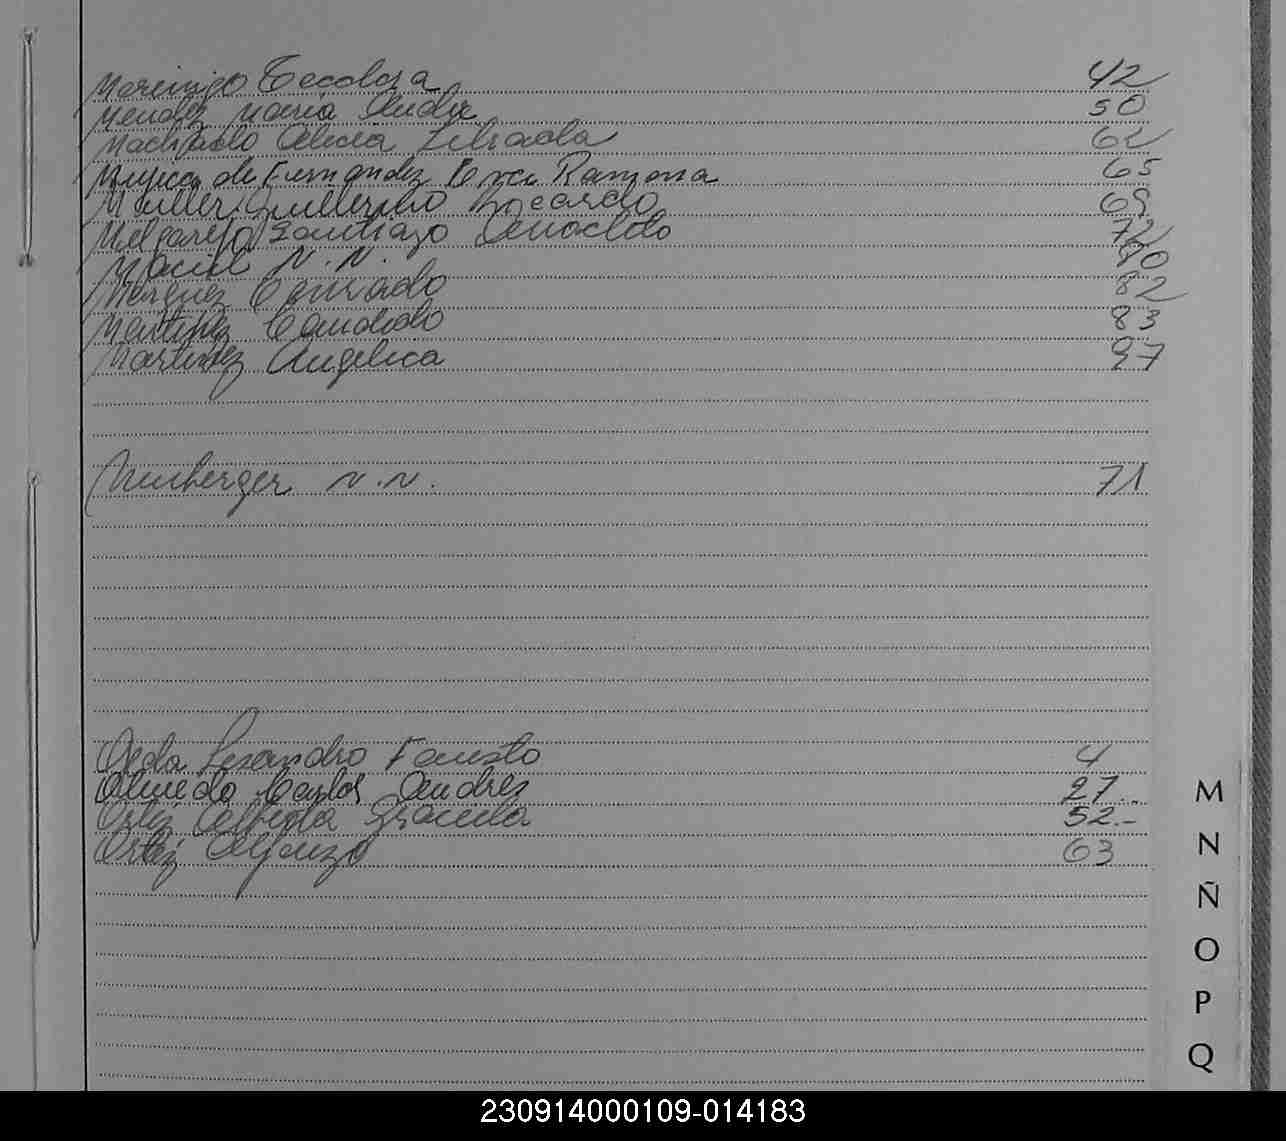 Mareñigo Teodora 42
Mendez Maria 50
Machado Alicia Librada 62
Mujica de Fernandez Ramona 65
Muller Guillermo Ricardo 69
Melgarejo Santiago 72
Maciel N.N. 80
Merquez Conrado 82
Martinez Candido 83
Martinez Angelica 97
Neuberger N.N. 71
Ojeda Lisandro Fausto 4
Olmedo Carlos Andres 27..
Ortiz Graciela 52.-
Ortiz 63
M
N
Ñ
O
P
Q
230914000109-014183